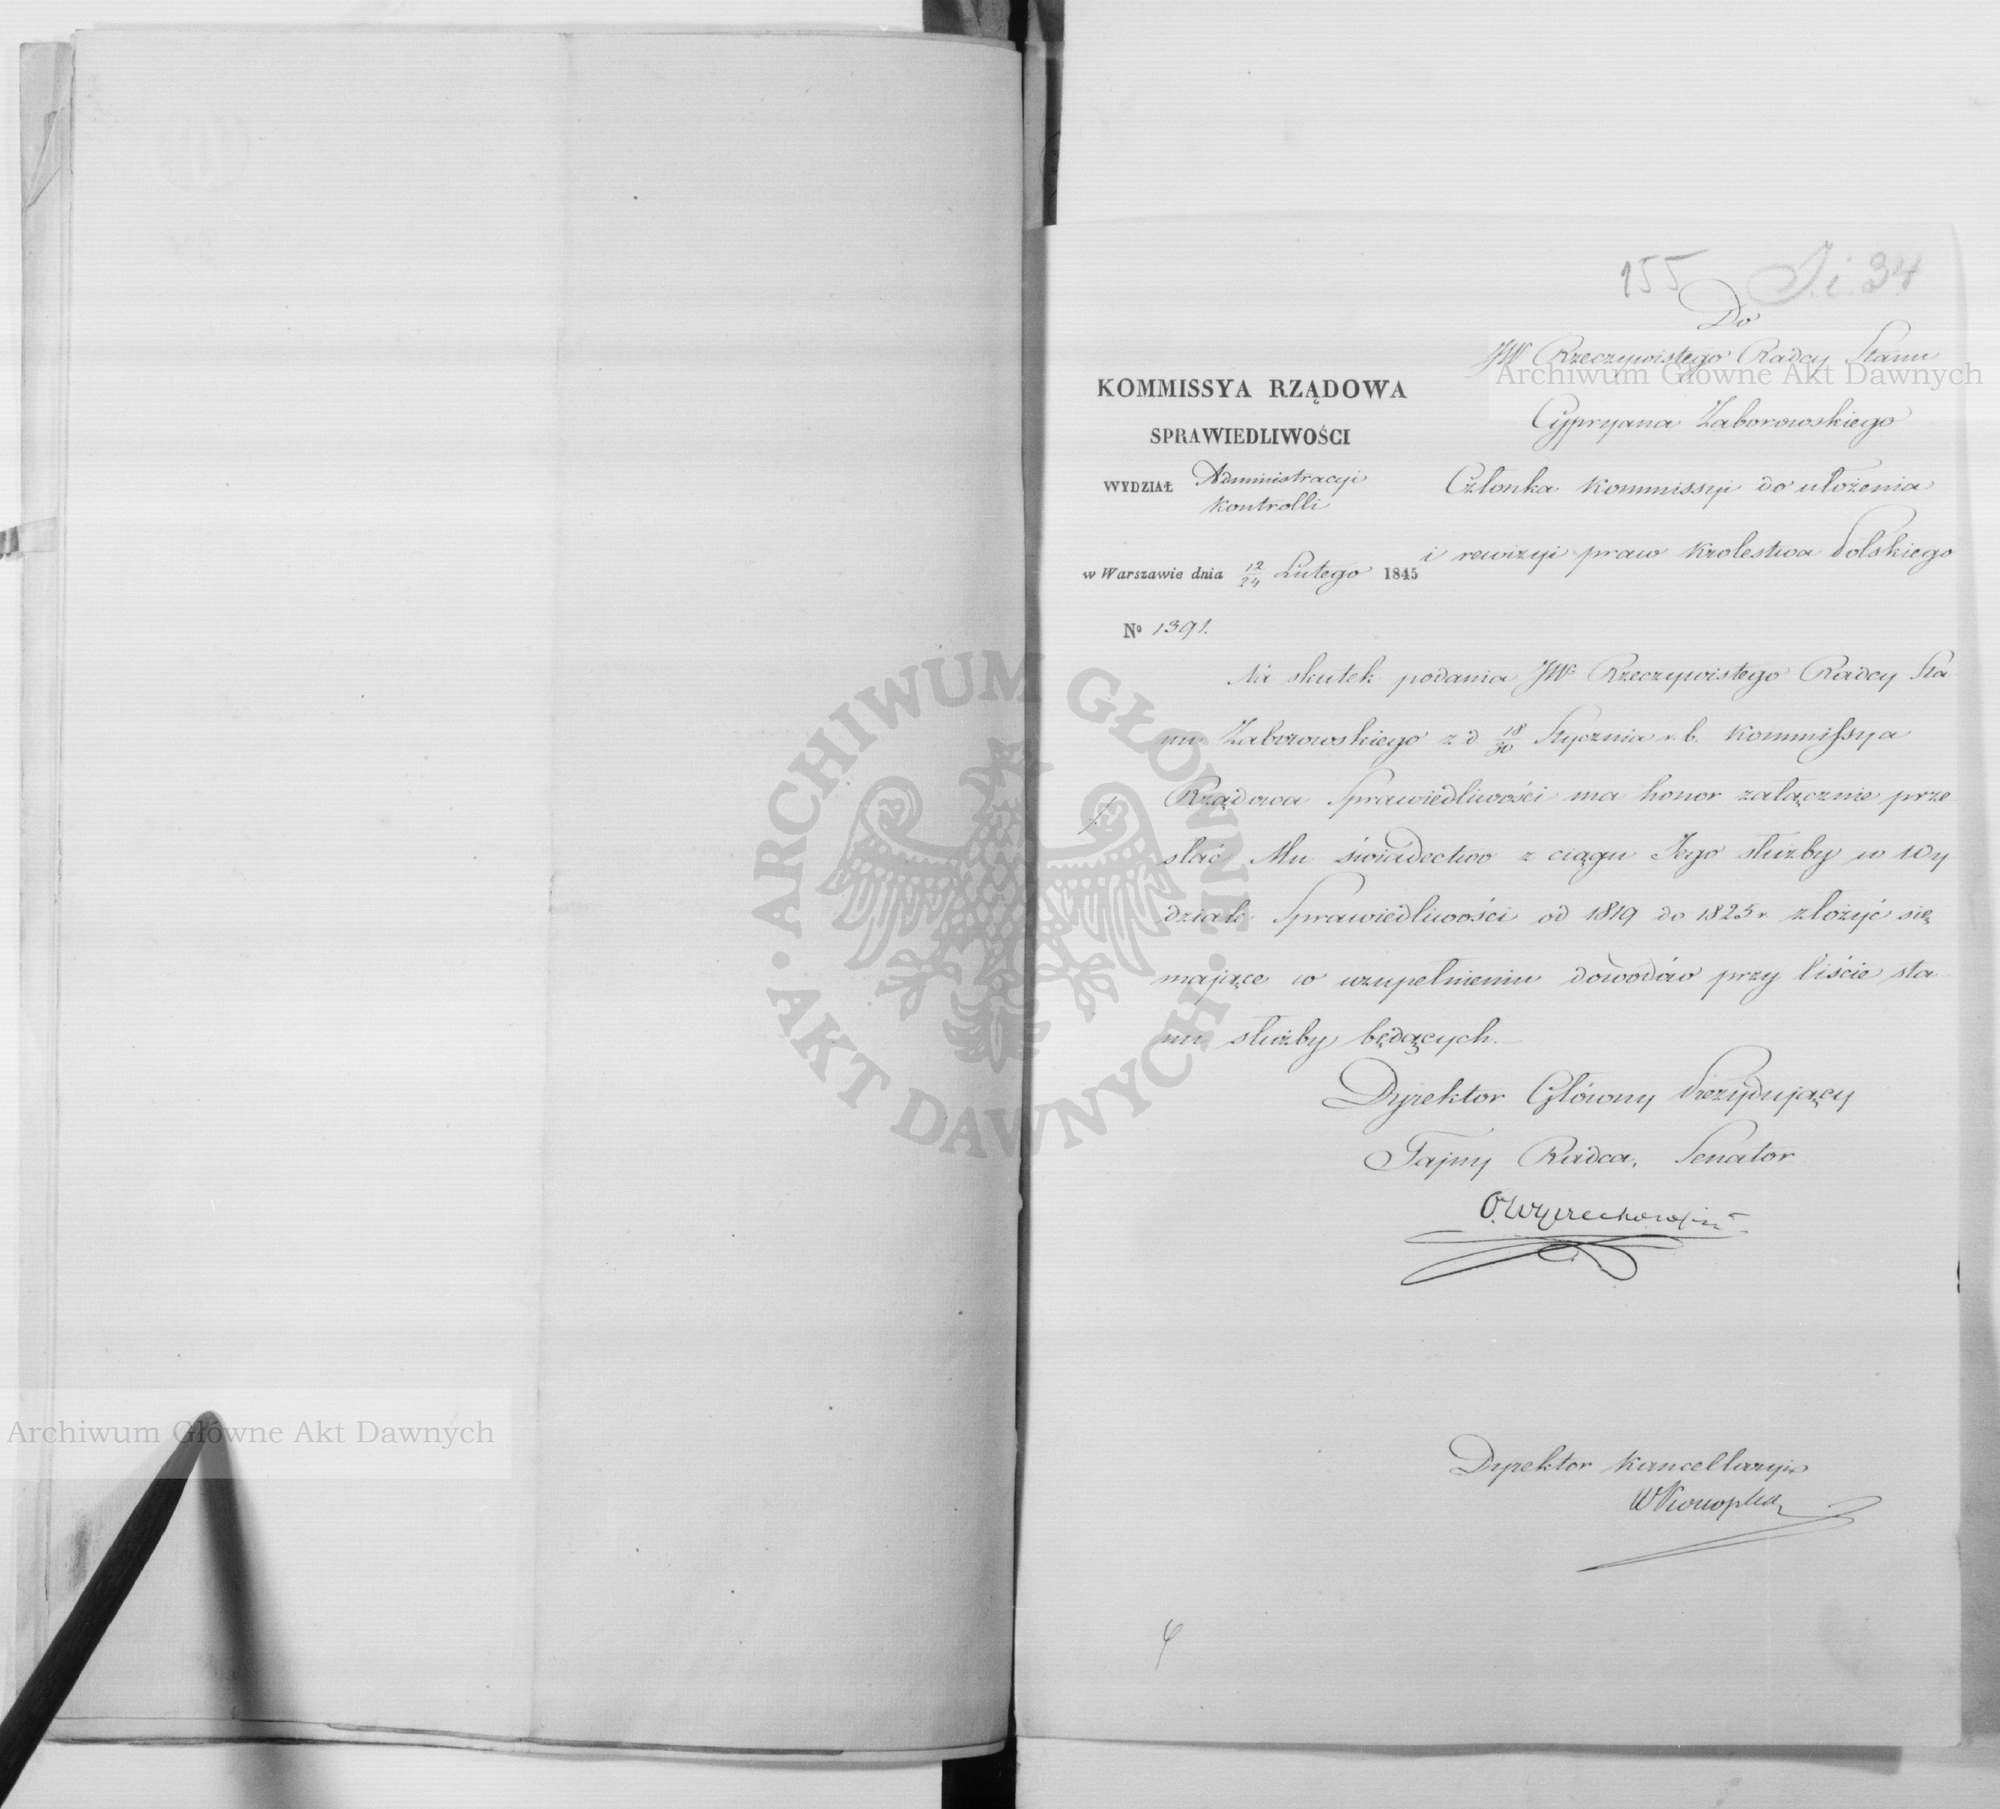 155 J. i. 34
Do
JW Rzeczywistego Radcy Stanu
Cypryana Zaborowskiego
Członka Kommissyi do ułożenia
i rewizyi praw Krolestwa Polskiego
KOMMISSYA RZĄDOWA
SPRAWIEDLIWOŚCI
WYDZIAŁ Administracyi
Kontrolli
w Warszawie dnia 12/24 Lutego 1845
№ 1391.
Na skutek podania JW. Rzeczywistego Radcy Sta
nu Zaborowskiego z d 18/30 Stycznia r. b. Kommissya
Rządowa Sprawiedliwości ma honor załącznie prze
słać Mu świadectwo z ciągu Jego służby w Wy
dziale Sprawiedliwości od 1819 do 1825 r. złożyć się
mające w uzupełnieniu dowodów przy liście sta
nu służby będących.
Dyrektor Główny Prezydujący
Tajny Radca, Senator
O. Wyczechowski
Dyrektor Kancellaryi
W Konopka
Archiwum Główne Akt Dawnych
Archiwum Główne Akt Dawnych
· ARCHIWUM GŁÓWNE · AKT DAWNYCH